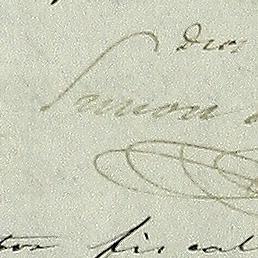 Dios
Simon
tor fiscal